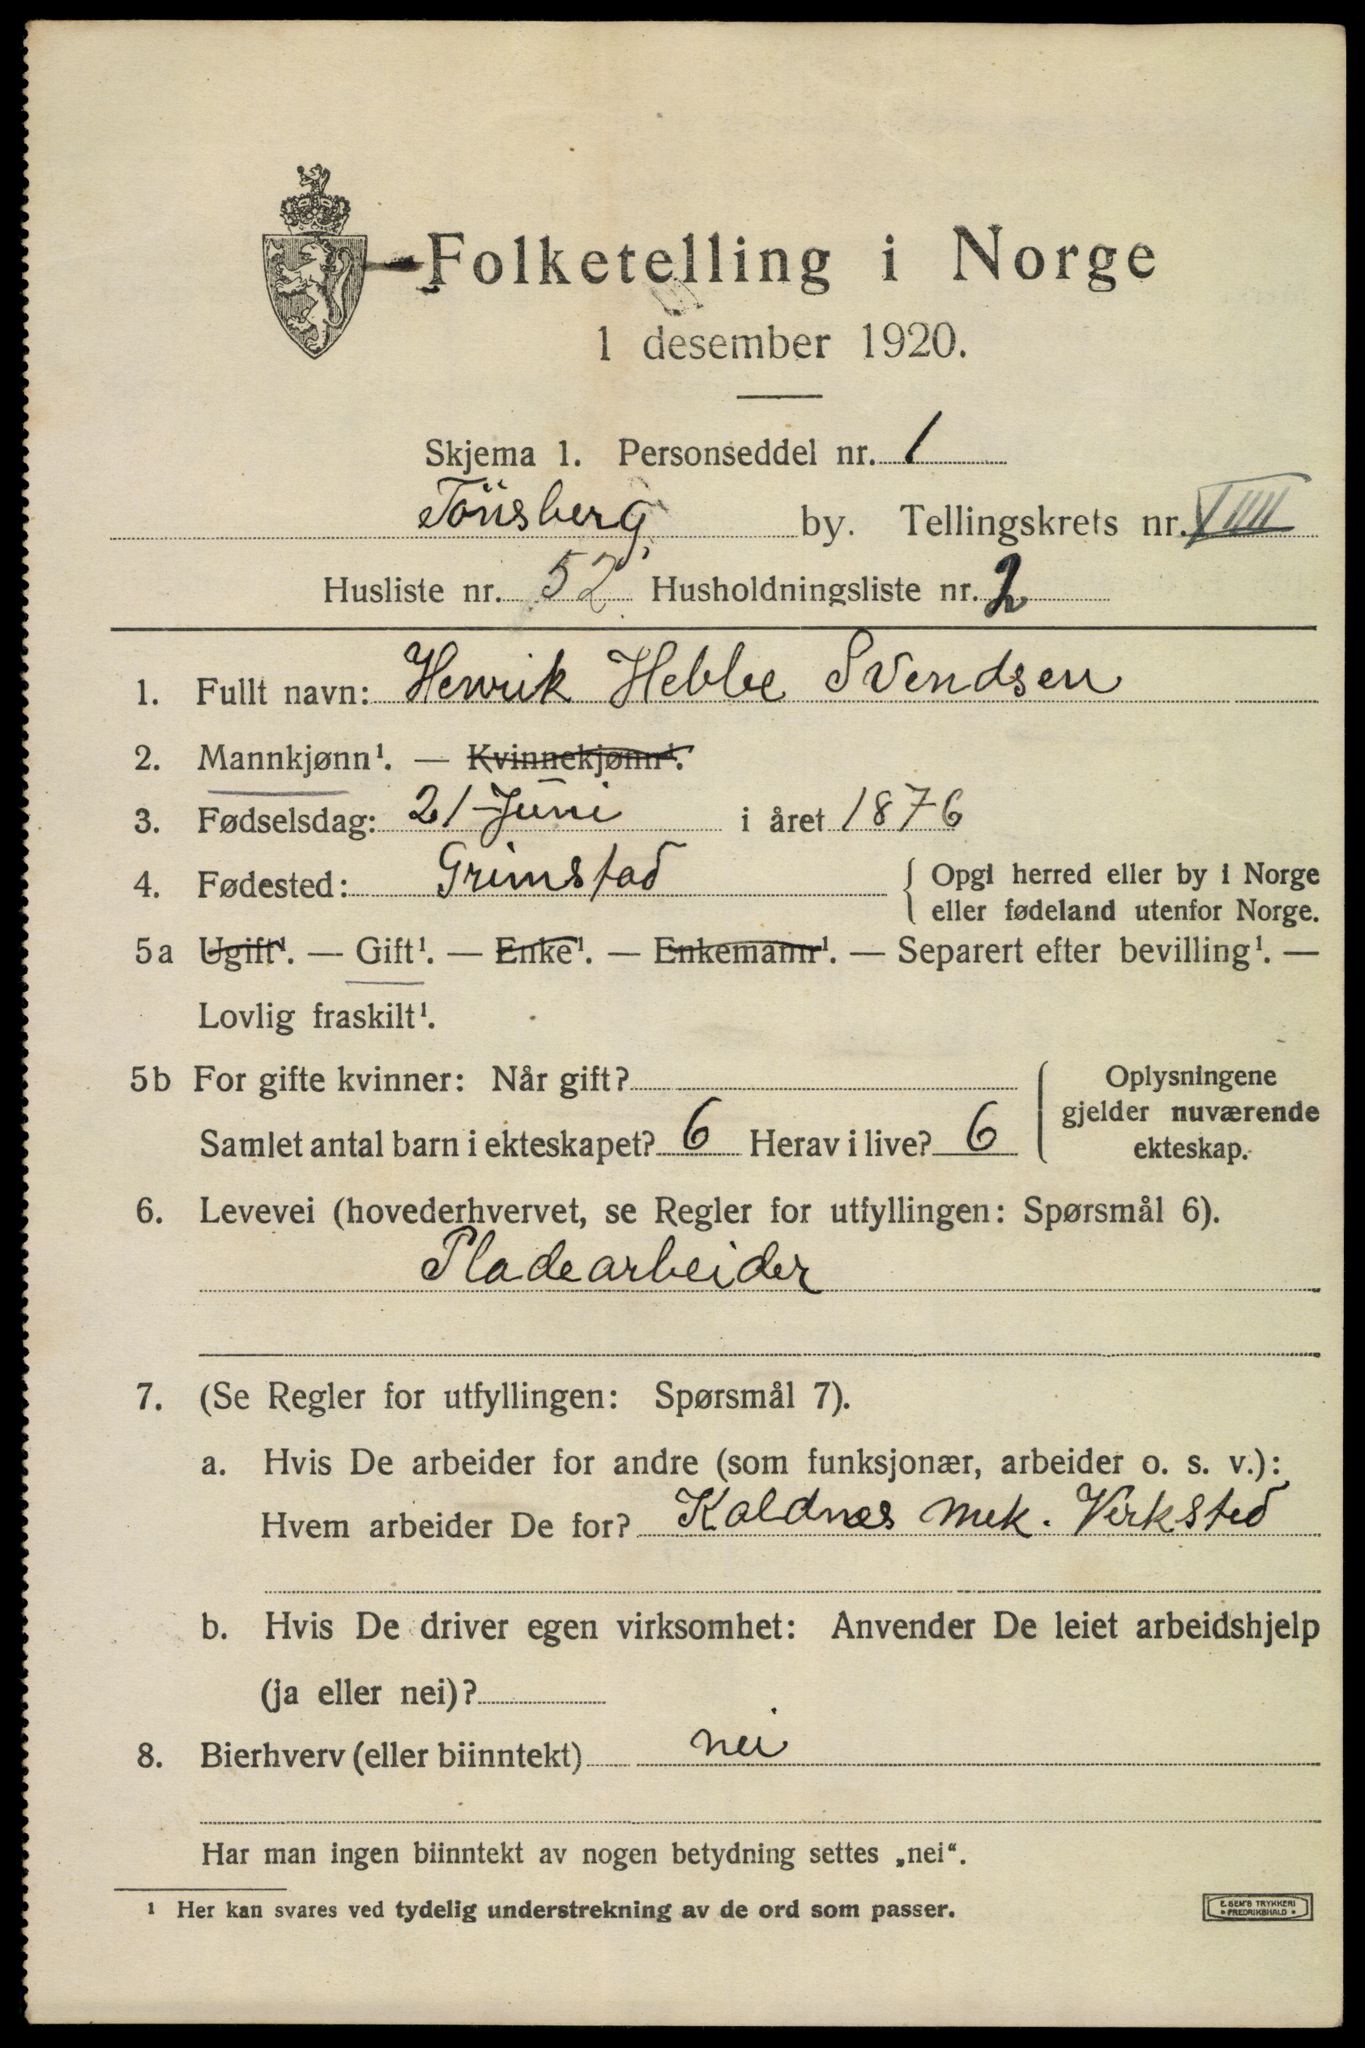 Folketelling i Norge
1 desember 1920.
Skjema 1. Personseddel nr. 1
Tönsberg by. Tellingskrets nr. VIIII
Husliste nr. 52 Husholdningsliste nr. 2
1. Fullt navn: Henrik Hebbe Svendsen
2. Mannkjønn¹. — Kvinnekjønn¹.
3. Fødselsdag: 21 Juni i året 1876
4. Fødested: Grimstad { Opgi herred eller by i Norge
eller fødeland utenfor Norge.
5a Ugift¹. — Gift¹. — Enke¹. — Enkemann¹. — Separert efter bevilling¹. —
Lovlig fraskilt¹.
5b For gifte kvinner: Når gift?
Samlet antal barn i ekteskapet? 6 Herav i live? 6
Oplysningene
gjelder nuværende
ekteskap.
6. Levevei (hovederhvervet, se Regler for utfyllingen: Spørsmål 6).
Pladearbeider
7. (Se Regler for utfyllingen: Spørsmål 7).
a. Hvis De arbeider for andre (som funksjonær, arbeider o. s. v.):
Hvem arbeider De for? Kaldnes mek. Verksted
b. Hvis De driver egen virksomhet: Anvender De leiet arbeidshjelp
(ja eller nei)?
8. Bierhverv (eller biinntekt) nei
Har man ingen biinntekt av nogen betydning settes „nei“.
¹ Her kan svares ved tydelig understrekning av de ord som passer.
E. SEM'S TRYKKERI
• FREDRIKSHALD •